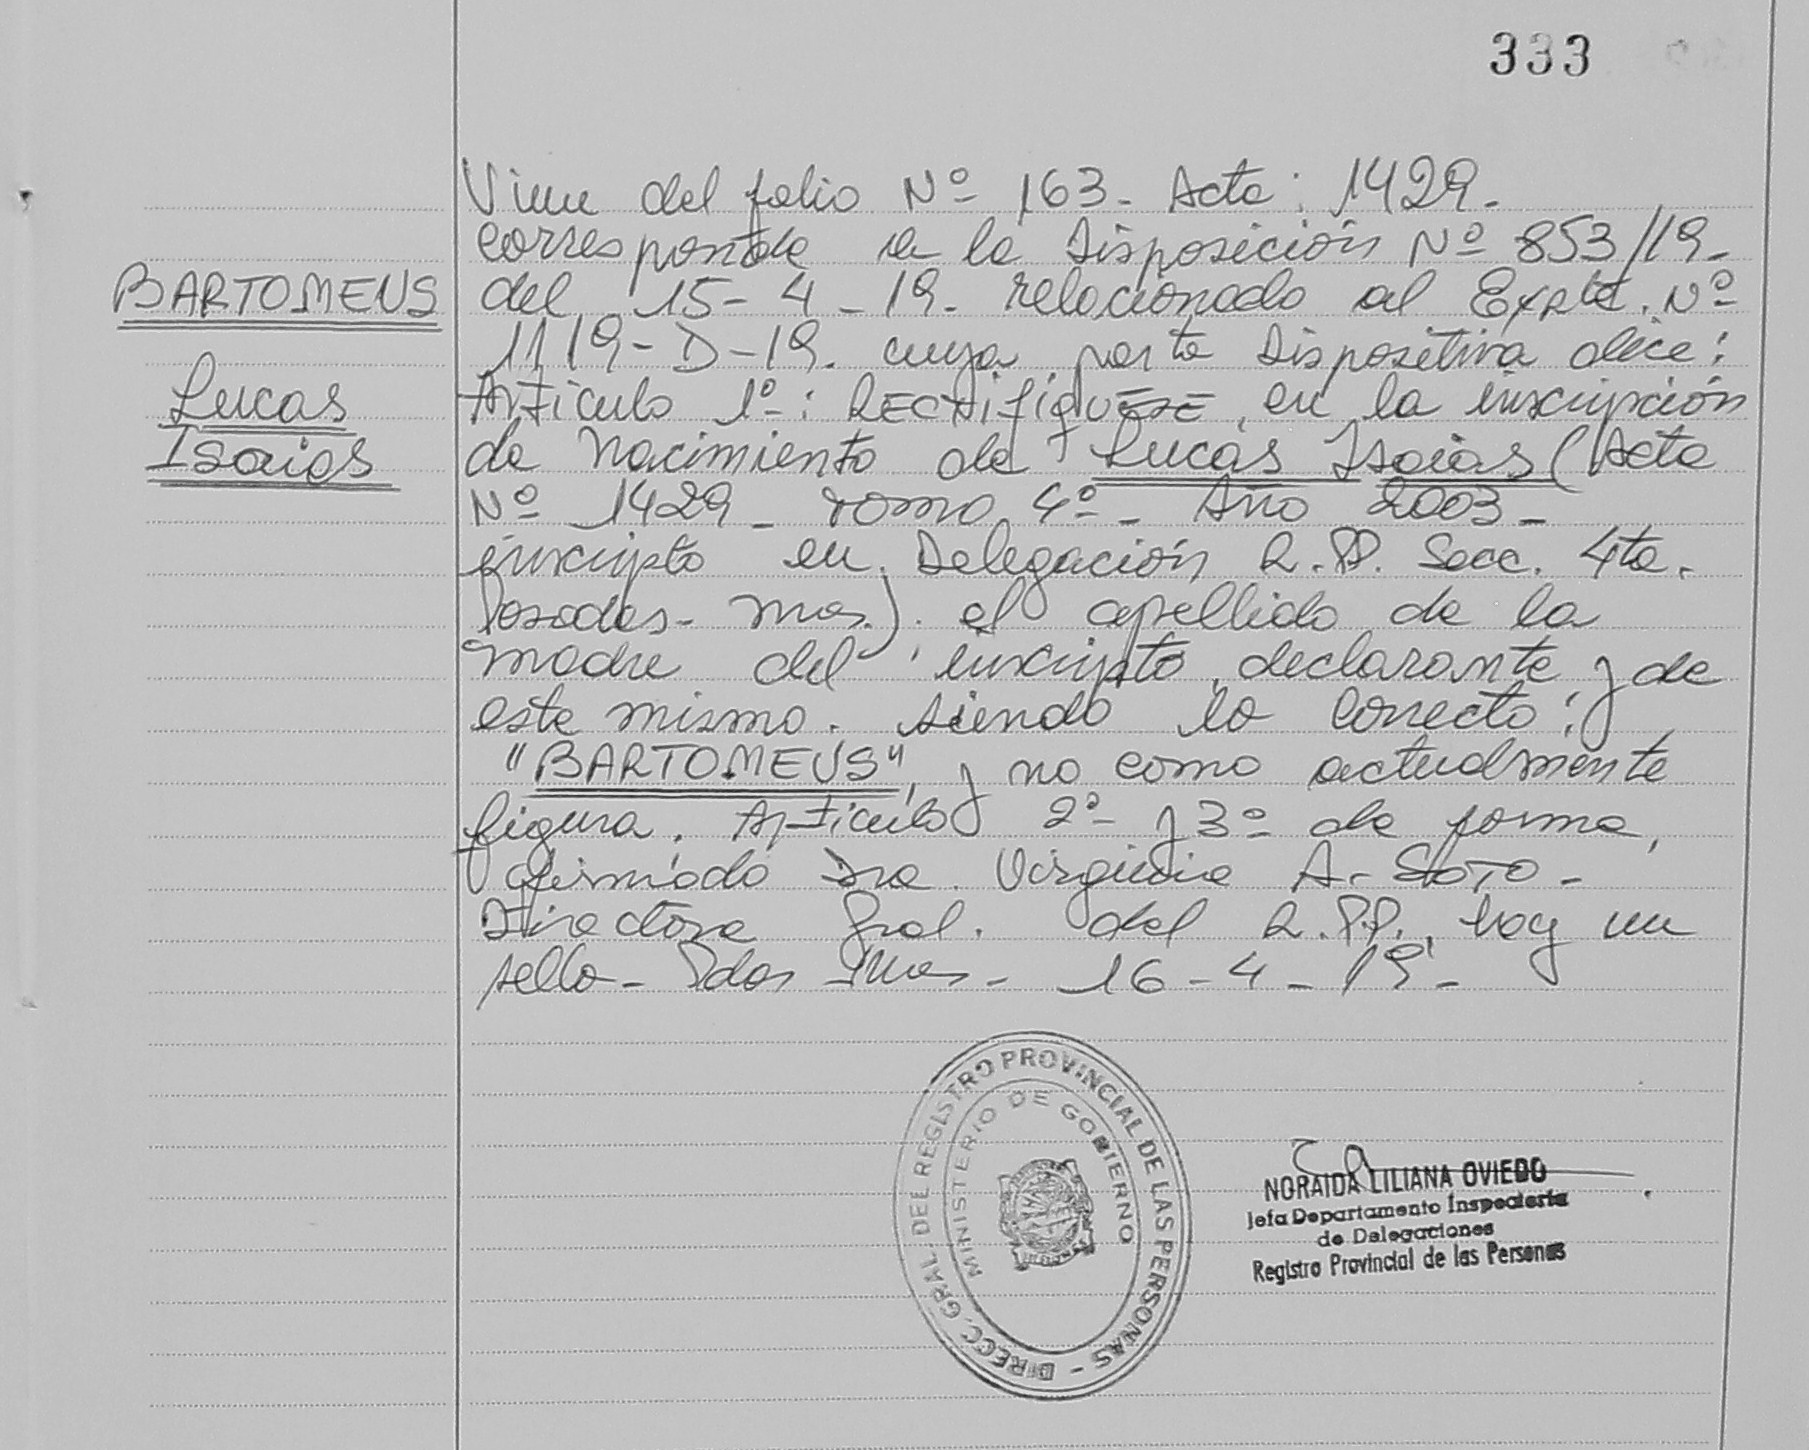 333
Viene del folio Nº 163. Acta: 1429.
corresponde a la Disposición Nº 853/19-
BARTOMEUS
del 15-4-19- relacionado al Expte. Nº
1119-D-19. cuya parte Dispositiva dice:
Lucas
Artículo 1º: RECTIFIQUESE, en la inscripción
Isaias
de nacimiento de Lucas Isaías (Acta
Nº 1429- Tomo 4º- Año 2003-
inscripto en Delegación R.P.P. Secc. 4ta.
Posadas- Mnes.). el apellido de la
madre del inscripto, declarante y de
este mismo. siendo lo correcto:
"BARTOMEUS", y no como actualmente
figura. Artículo 2º y 3º de forma,
firmado Dra. Virginia A. SOTO-
Directora Gral. del R.P.P. hay un
sello- Pdas Mnes- 16-4-19-
DIRECC. GRAL. DEL REGISTRO PROVINCIAL DE LAS PERSONAS -
MINISTERIO DE GOBIERNO
NORAIDA LILIANA OVIEDO
Jefa Departamento Inspectoría
de Delegaciones
Registro Provincial de las Personas